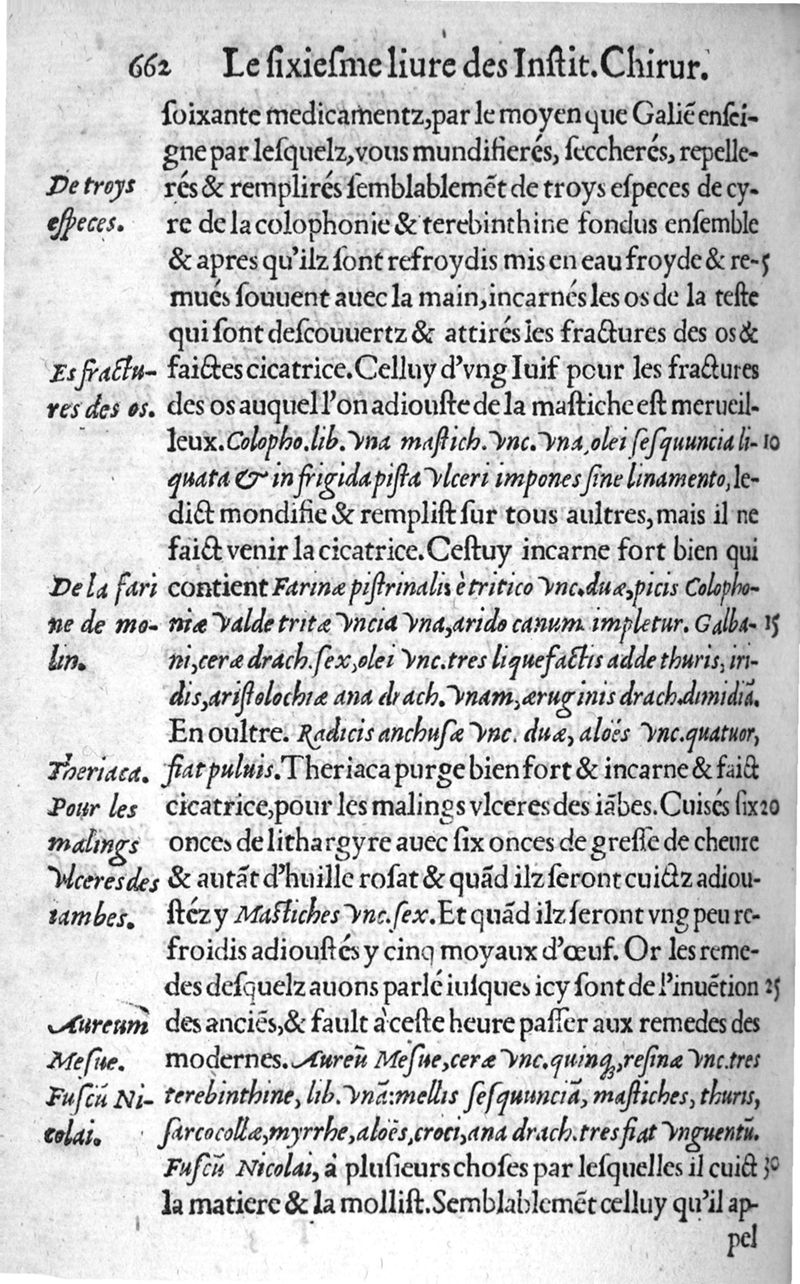 662 Le ſixieſme liure des Inſtit. Chirur.
ſoixante medicamentz, par le moyen que Galiē enſei-
gne par leſquelz, vous mundifierés, ſeccherés, repelle-
De troys rés & remplirés ſemblablemēt de troys eſpeces de cy-
eſpeces. re de la colophonie & terebinthine fondus enſemble
& apres qu'ilz ſont refroydis mis en eau froyde & re- 5
mués ſouuent auec la main, incarnés les os de la teſte
qui ſont deſcouuertz & attirés les fractures des os &
Es fractu- faictes cicatrice. Celluy d'vng Iuif pour les fractures
res des os. des os auquel l'on adiouſte de la maſtiche eſt merueil-
leux. Colopho. lib. vna maſtich. vnc. vna, olei ſeſquuncia li- 10
quata & in frigida piſta vlceri impones ſine linamento, le-
dict mondifie & rempliſt ſur tous aultres, mais il ne
faict venir la cicatrice. Ceſtuy incarne fort bien qui
De la fari contient Farinæ piſtrinalis è tritico vnc. duæ, picis Colopho-
ne de mo- niæ valde tritæ vncia vna, arido canum impletur. Galba- 15
lin. ni, ceræ drach. ſex, olei vnc. tres liquefactis adde thuris, iri-
dis, ariſtolochiæ ana drach. vnam, æruginis drach. dimidiā.
En oultre. Radicis anchuſæ vnc. duæ, aloës vnc. quatuor,
Theriaca. fiat puluis. Theriaca purge bien fort & incarne & faict
Pour les cicatrice, pour les malings vlceres des iābes. Cuisés ſix 20
malings onces de lithargyre auec ſix onces de greſſe de cheure
vlceres des & autāt d'huille roſat & quād ilz ſeront cuictz adiou-
iambes. ſtéz y Maſtiches vnc. ſex. Et quād ilz ſeront vng peu re-
froidis adiouſtés y cinq moyaux d'œuf. Or les reme-
des deſquelz auons parlé iuſques icy ſont de l'inuētion 25
Aureum des anciēs, & fault à ceſte heure paſſer aux remedes des
Meſue. modernes. Aureū Meſue, ceræ vnc. quinq;, reſinæ vnc. tres
Fuſcū Ni- terebinthine, lib. vnā: mellis ſeſquunciā, maſtiches, thuris,
colai. ſarcocollæ, myrrhe, aloës, croci, ana drach. tres fiat vnguentū.
Fuſcū Nicolai, à pluſieurs choſes par leſquelles il cuict 30
la matiere & la molliſt. Semblablemēt celluy qu'il ap-
pel